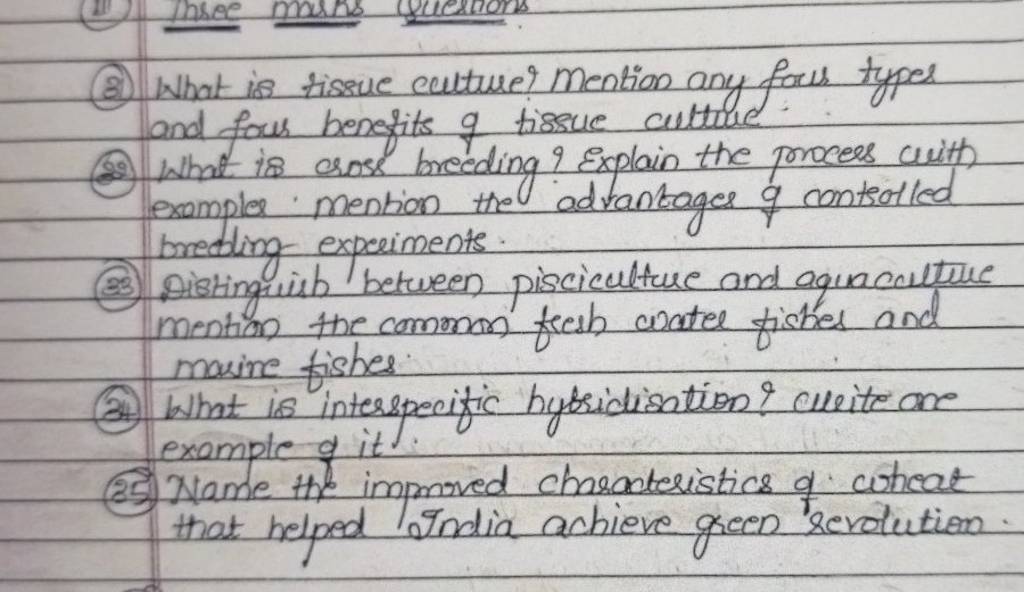 III Three marks Questions
31 What is tissue culture? Mention any four types
and four benefits of tissue culture.
32 What is cross breeding? Explain the process with
examples. mention the advantages of controlled
breeding experiments.
33 Distinguish between pisciculture and aquaculture
mention the common fresh water fishes and
marine fishes.
34 What is interspecific hybridisation? write one
example of it.
35 Name the improved characteristics of wheat
that helped India achieve green revolution.